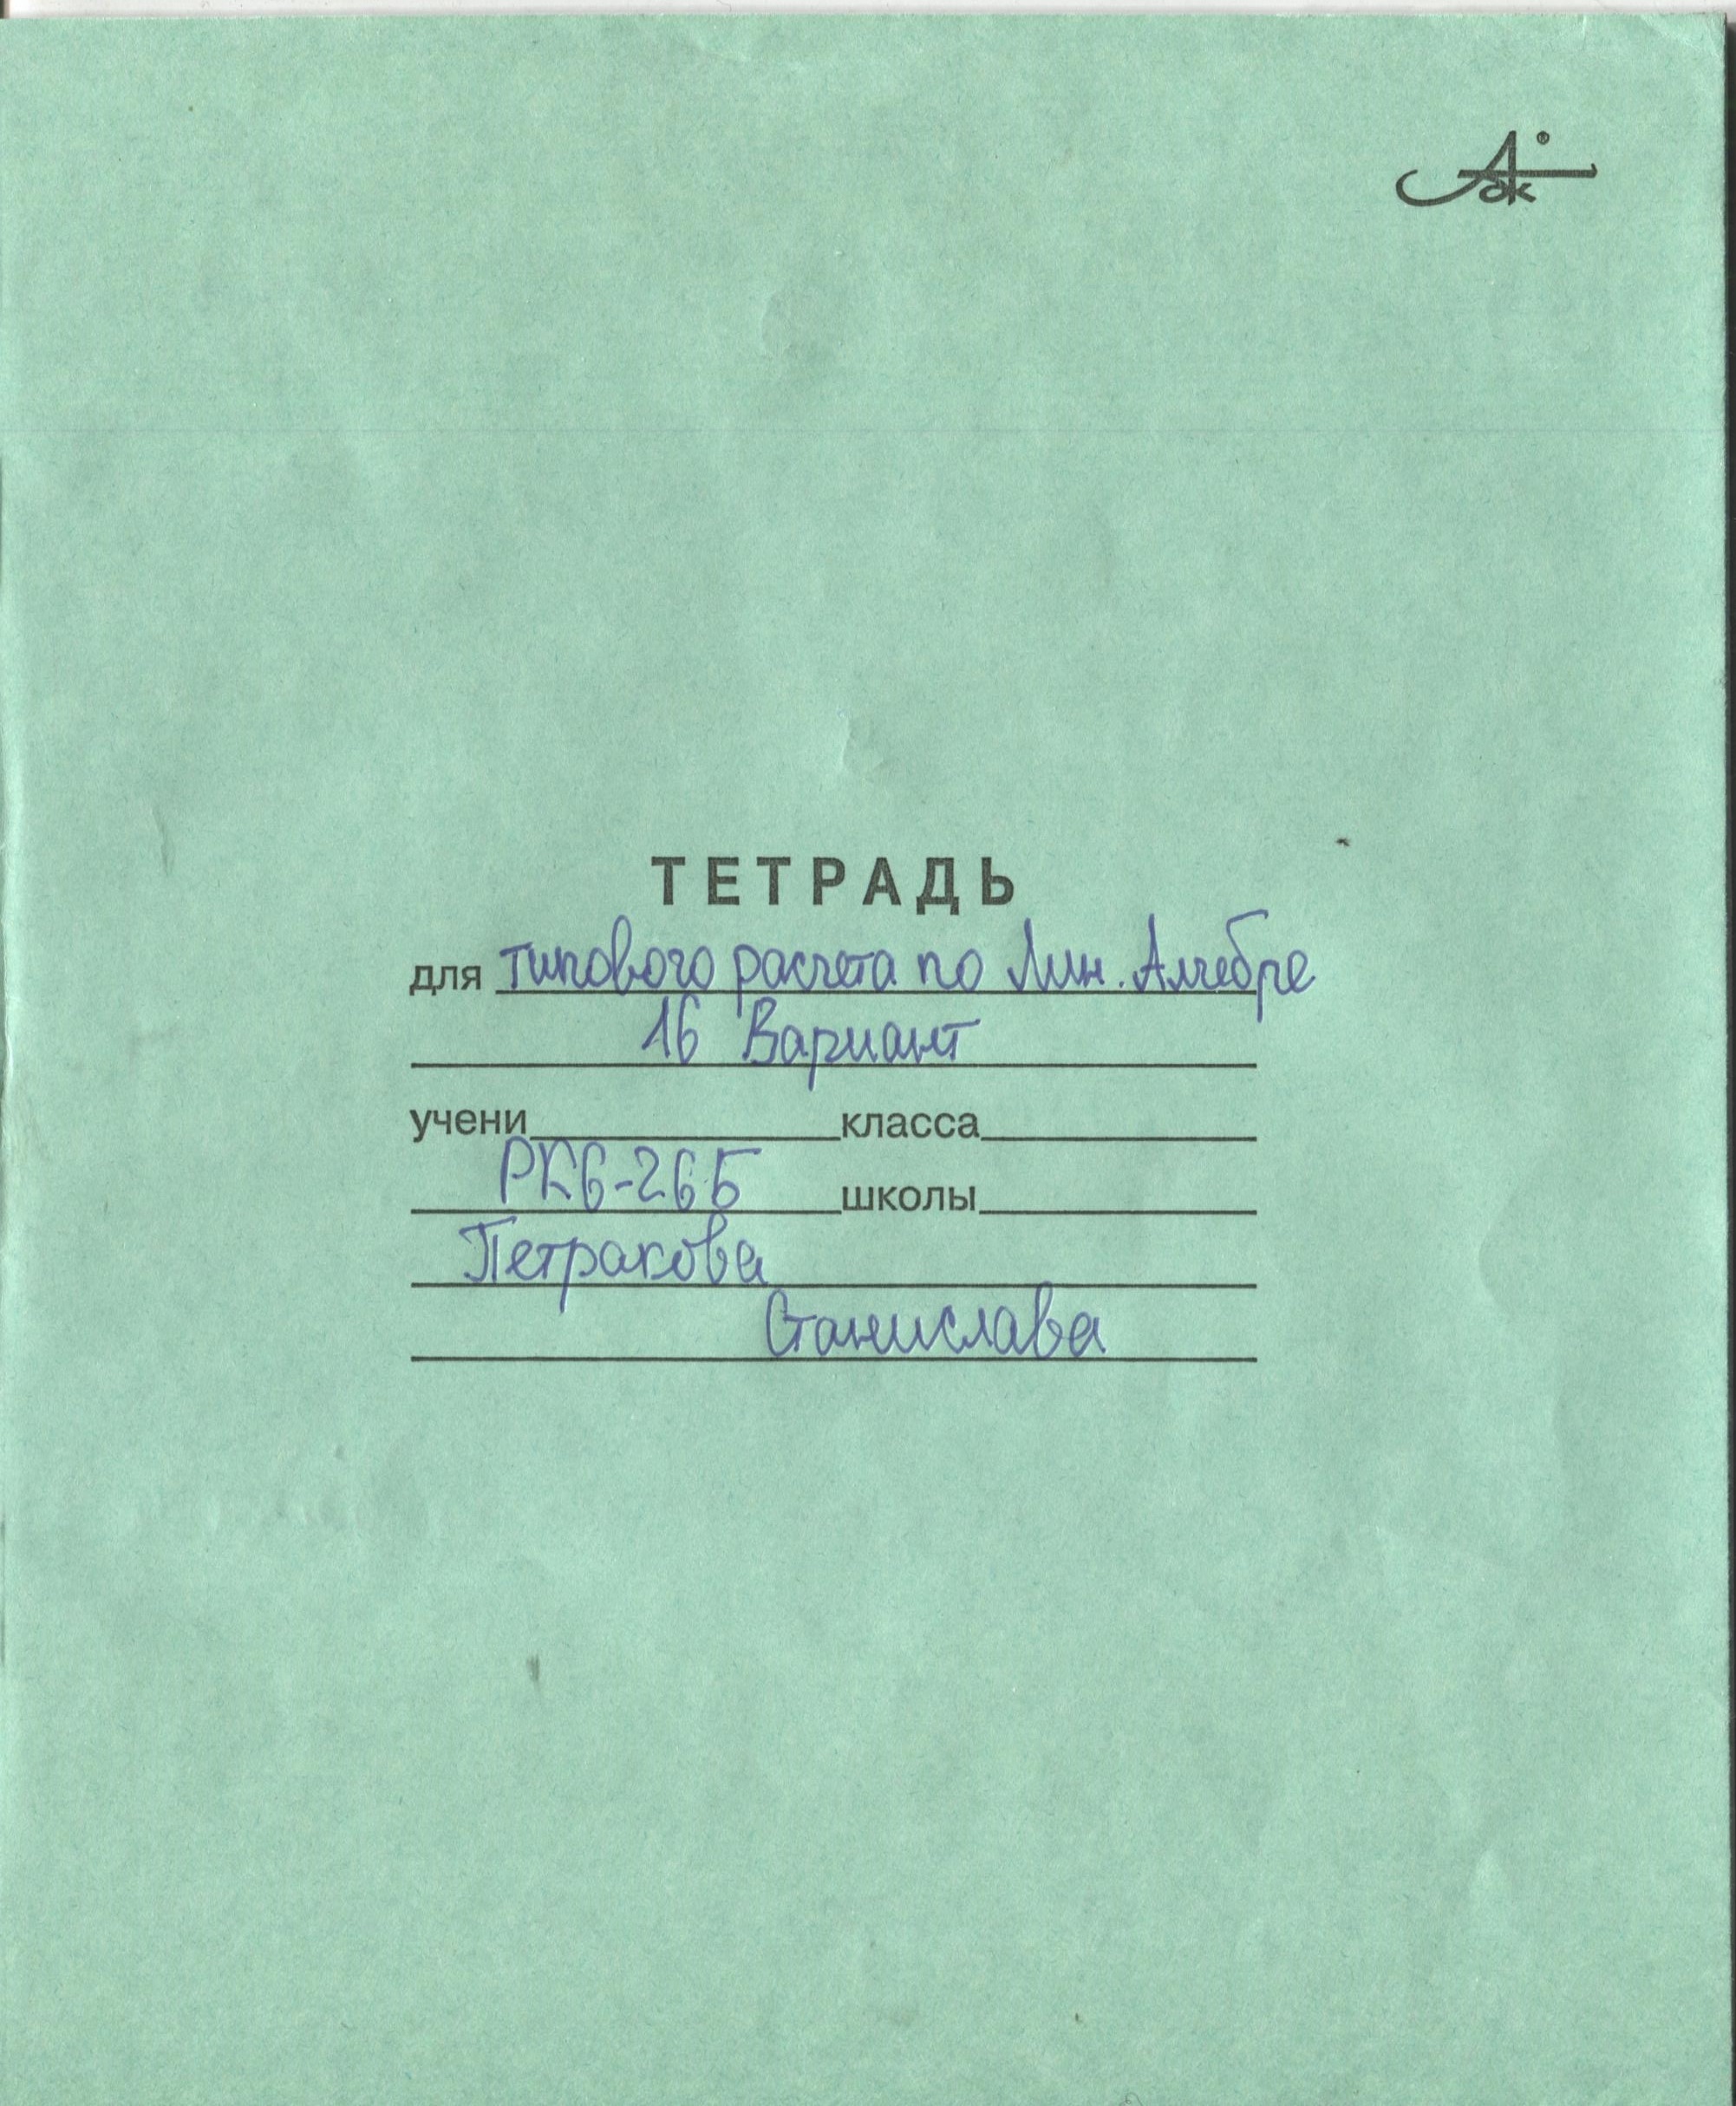 Аок®
ТЕТРАДЬ
для типового расчета по Лин. Алгебре
16 Вариант
учени класса
РК6-26Б школы
Петракова
Станислава